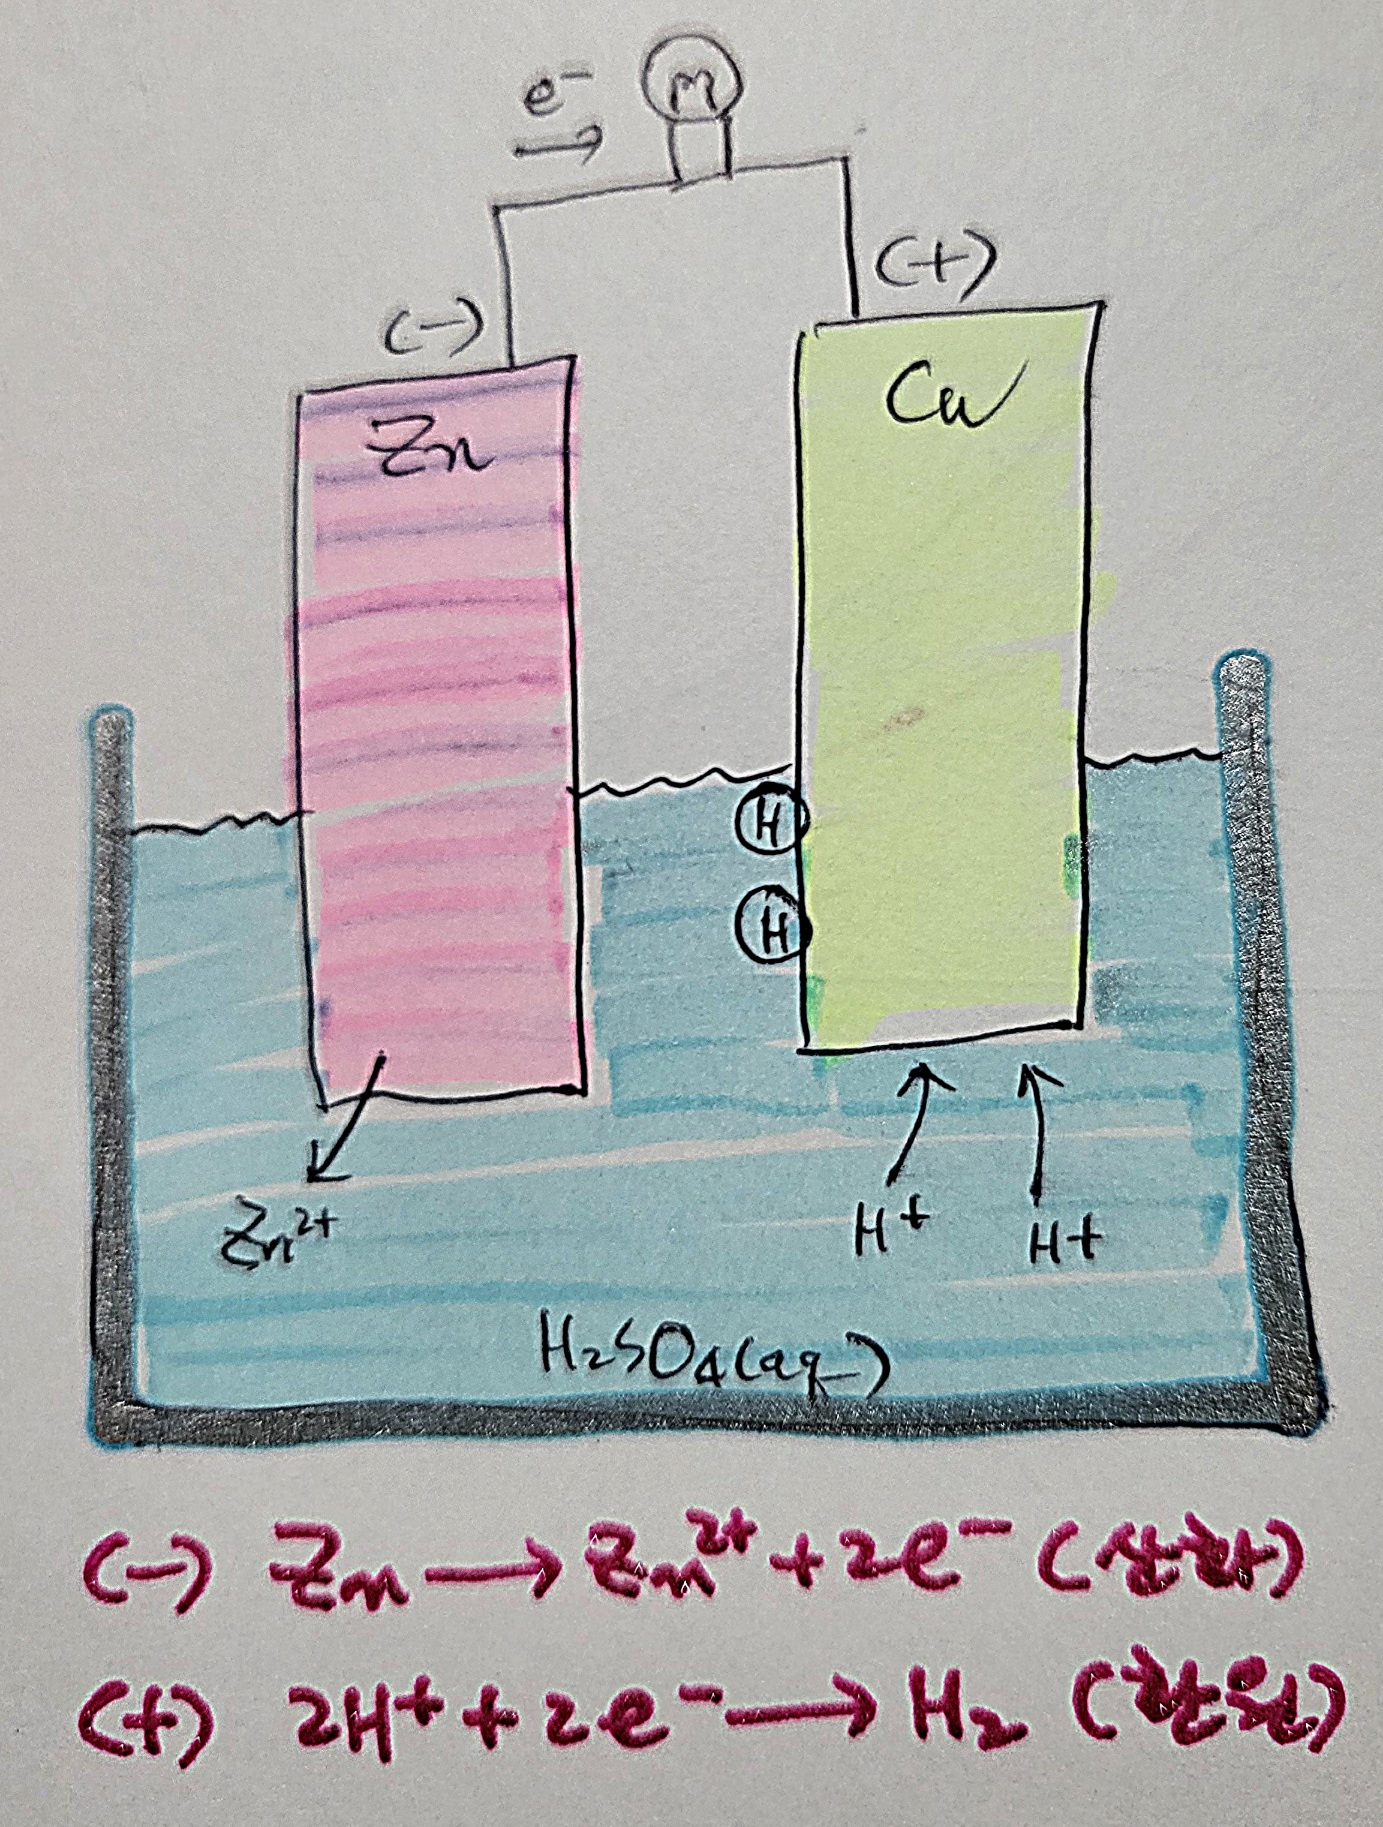 e⁻ →
(−)
(+)
Zn
Cu
H
H
Zn²⁺
H⁺
H⁺
H₂SO₄(aq)
(−) Zn → Zn²⁺ + 2e⁻ (산화)
(+) 2H⁺ + 2e⁻ → H₂ (환원)